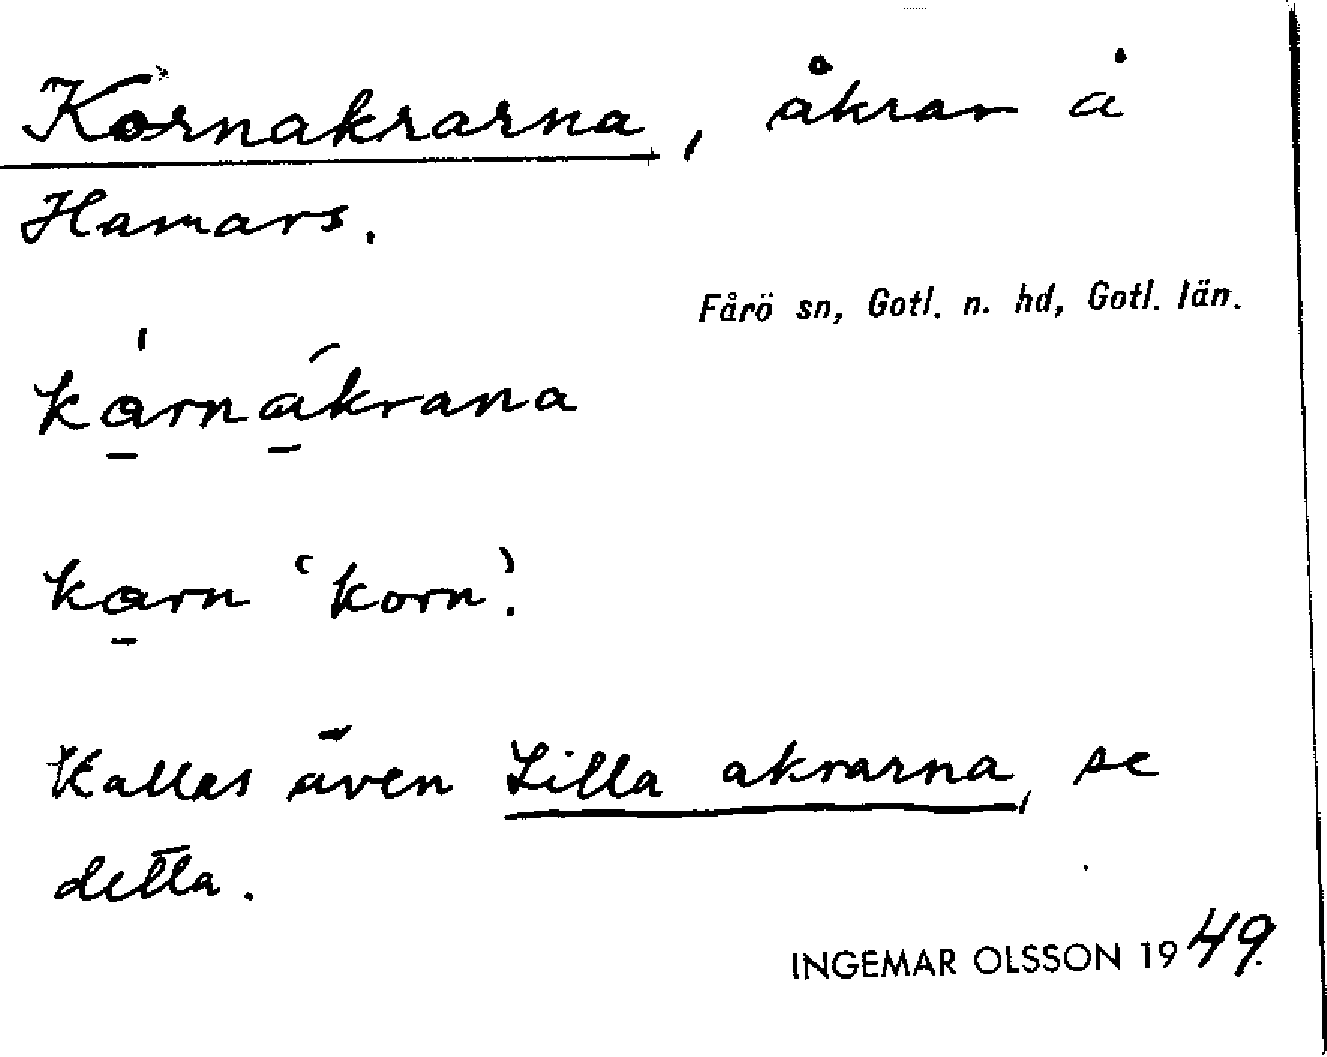 Kornakrarna, åkrar å
Hamars.
Fårö sn, Gotl. n. hd, Gotl. län.
ka̱rna̱krana
ka̱rn ‘korn’.
Kallas även Lilla akrarna, se
detta.
INGEMAR OLSSON 1949.